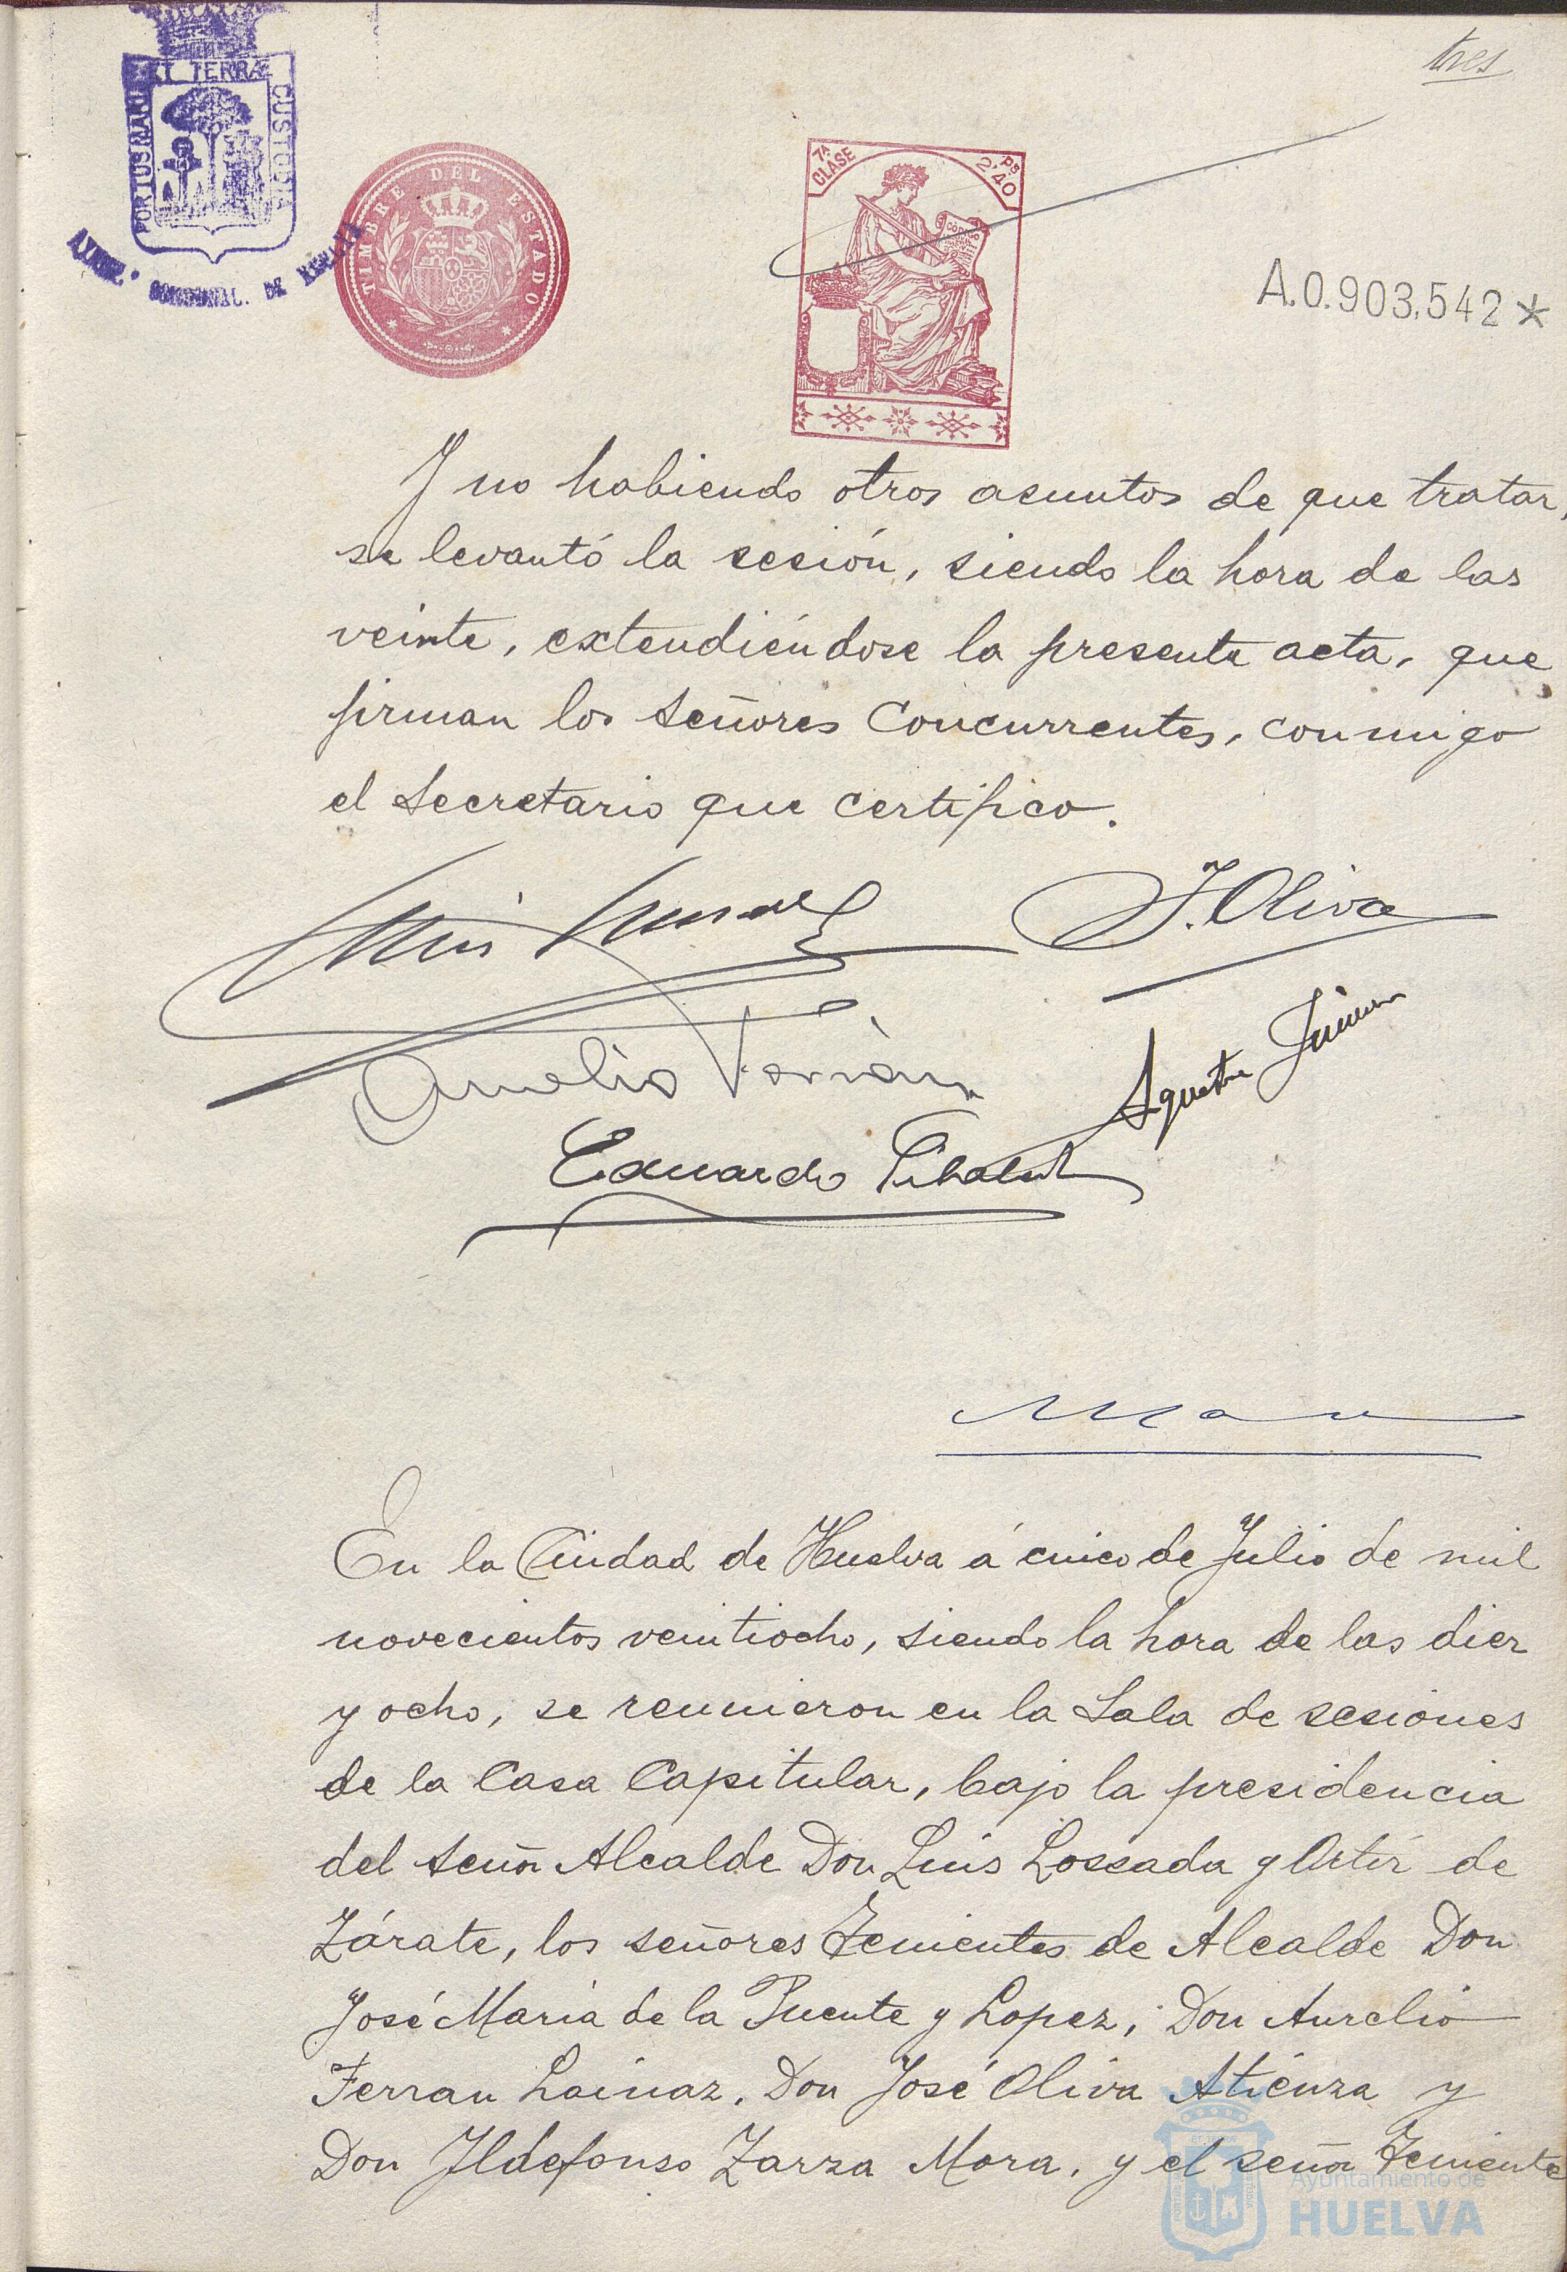 tres
PORTUS MARIS ET TERRÆ CUSTODIA
TIMBRE DEL ESTADO
7ª CLASE
2'40 PS
A.0.903,542*
Y no habiendo otros asuntos de que tratar,
se levantó la sesión, siendo la hora de las
veinte, extendiéndose la presente acta, que
firman los señores Concurrentes, conmigo
el Secretario que certifico.
J. Oliva
Aurelio Ferrán
Eduardo
En la Ciudad de Huelva á cinco de Julio de mil
novecientos veintiocho, siendo la hora de las diez
y ocho, se reunieron en la Sala de sesiones
de la Casa Capitular, bajo la presidencia
del señor Alcalde Don Luis Lossada y Ortiz de
Zárate, los señores Tenientes de Alcalde Don
José María de la Puente y Lopez, Don Aurelio
Ferran Lainaz, Don José Oliva Atienza y
Don Ildefonso Zarza Mora, y el señor Teniente
Ayuntamiento de
HUELVA